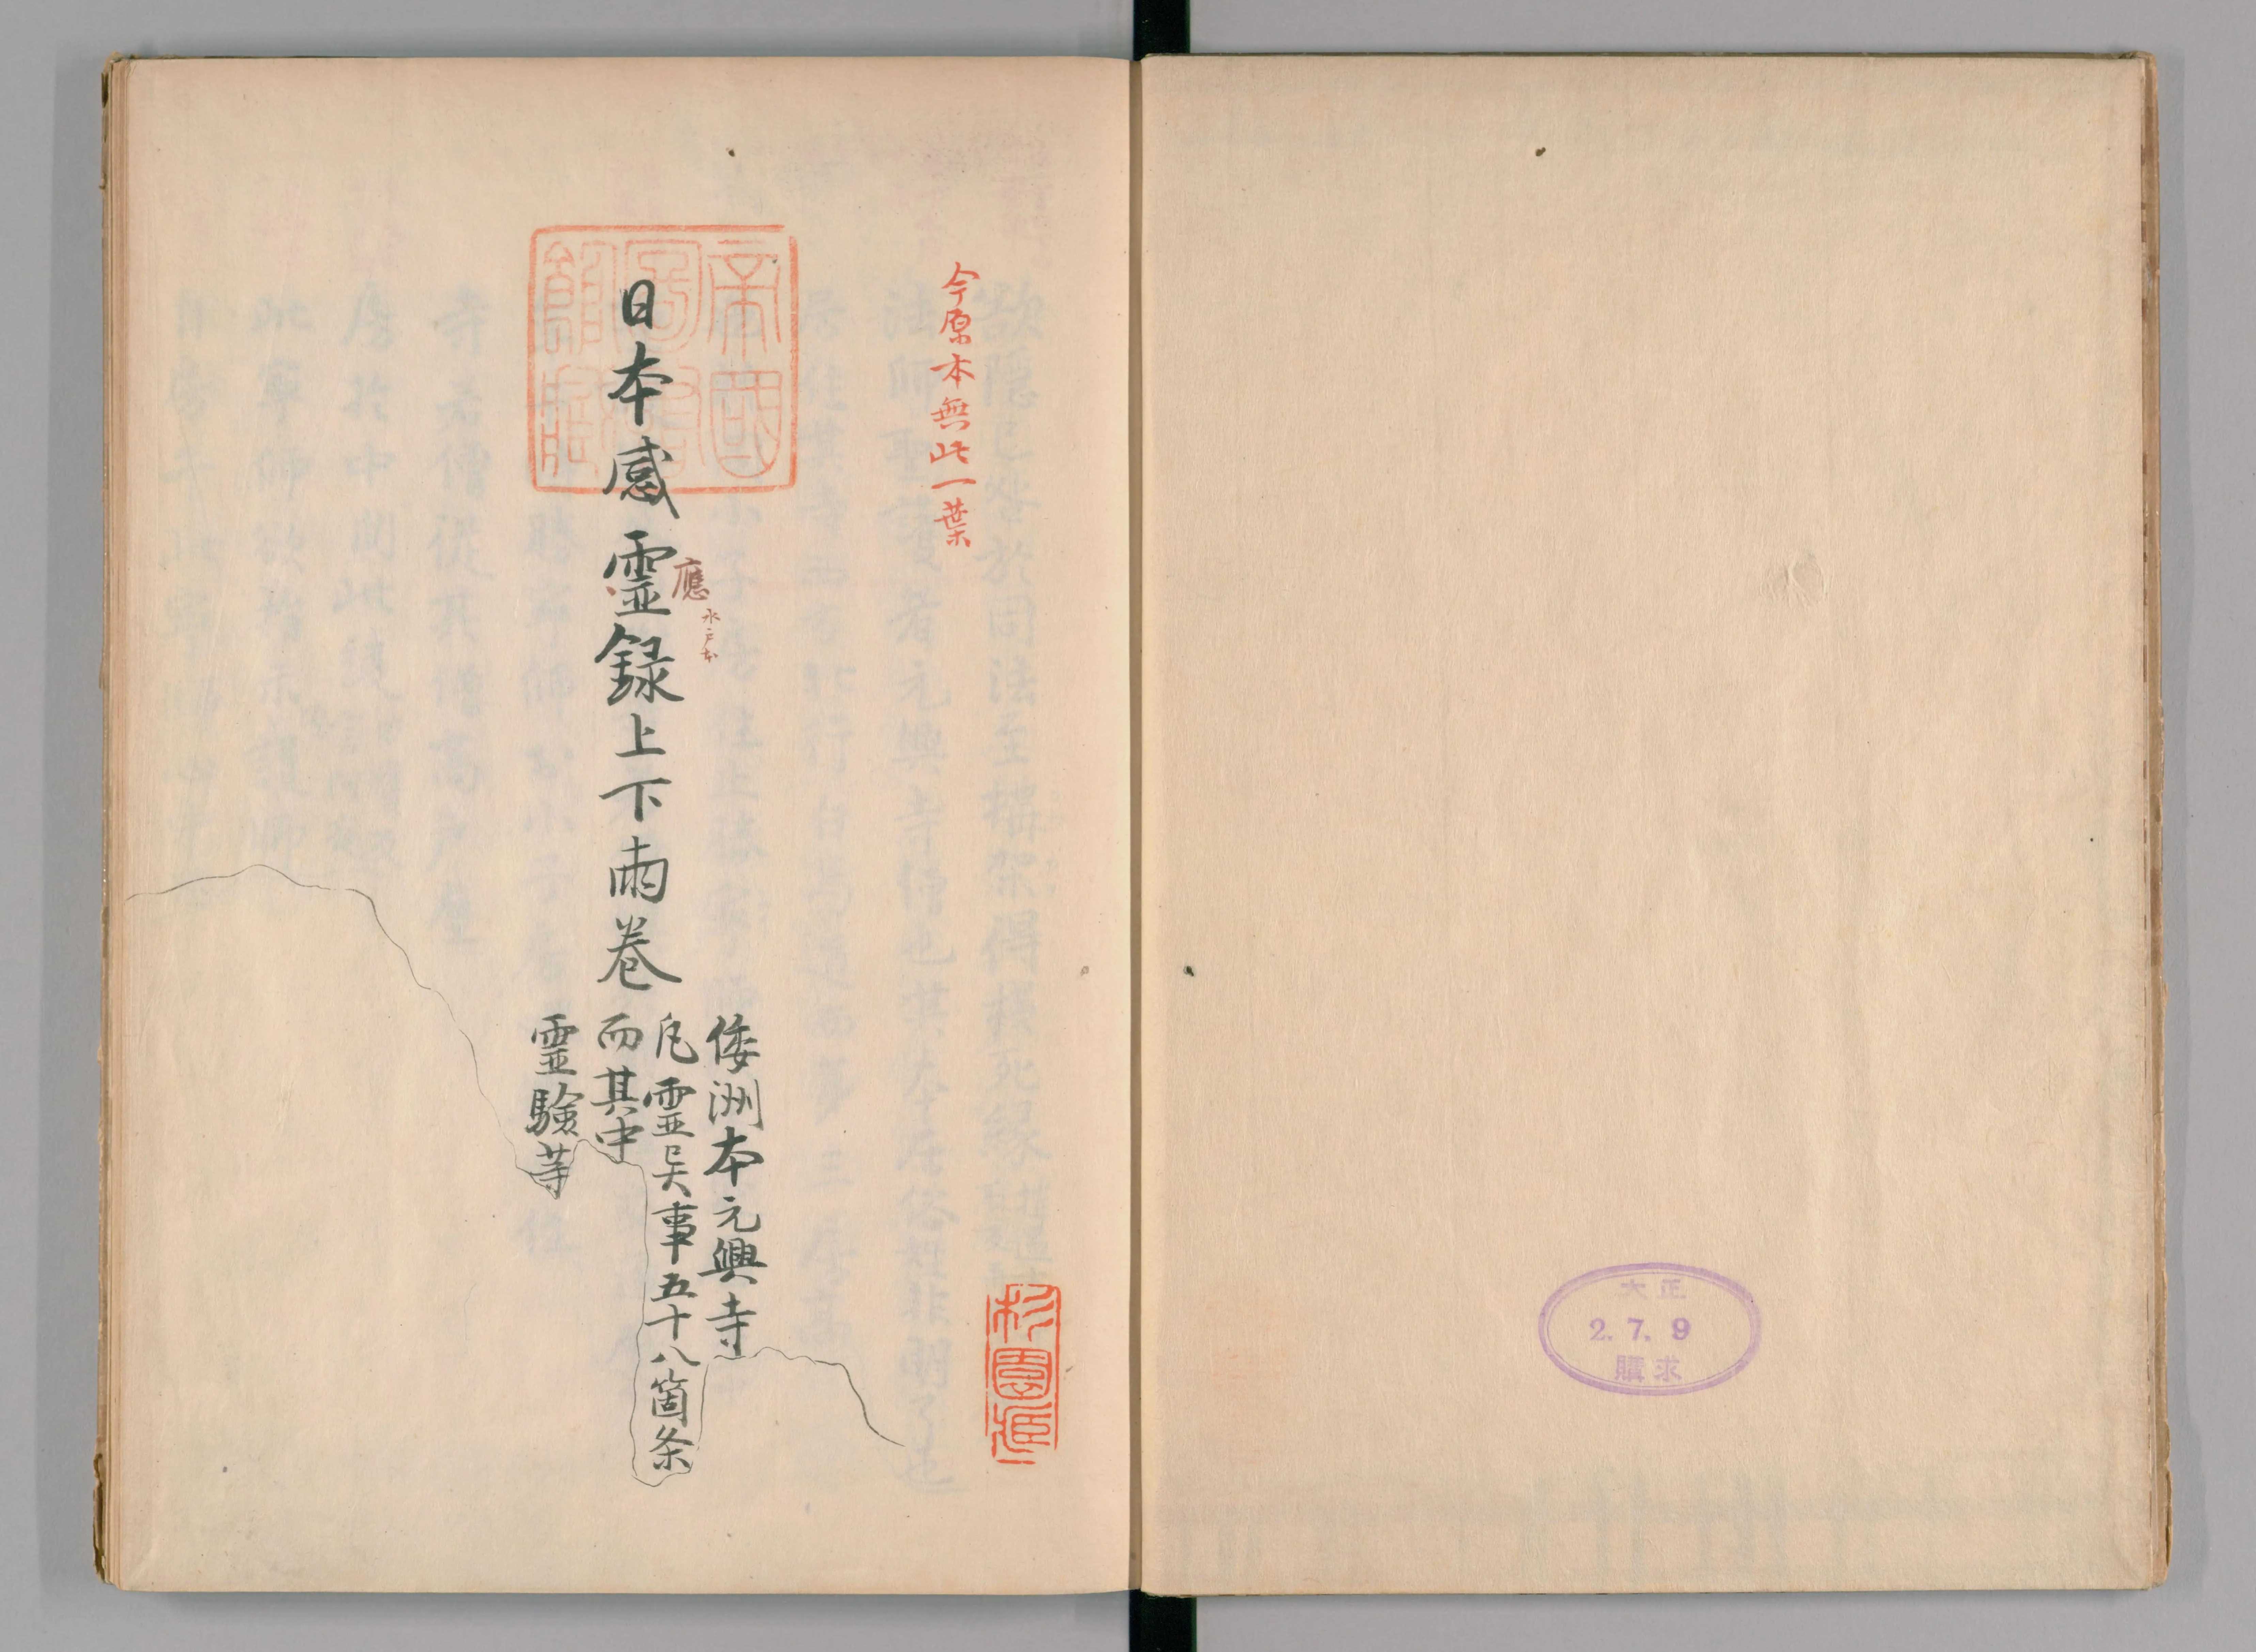 大正
2.7.9
購求
今原本無此一葉
杉園蔵
帝國
圖書
館藏
日本感霊録上下両巻
應
水戸本
倭洲本元興寺
凡霊異事五十八箇条
而其中
霊験等